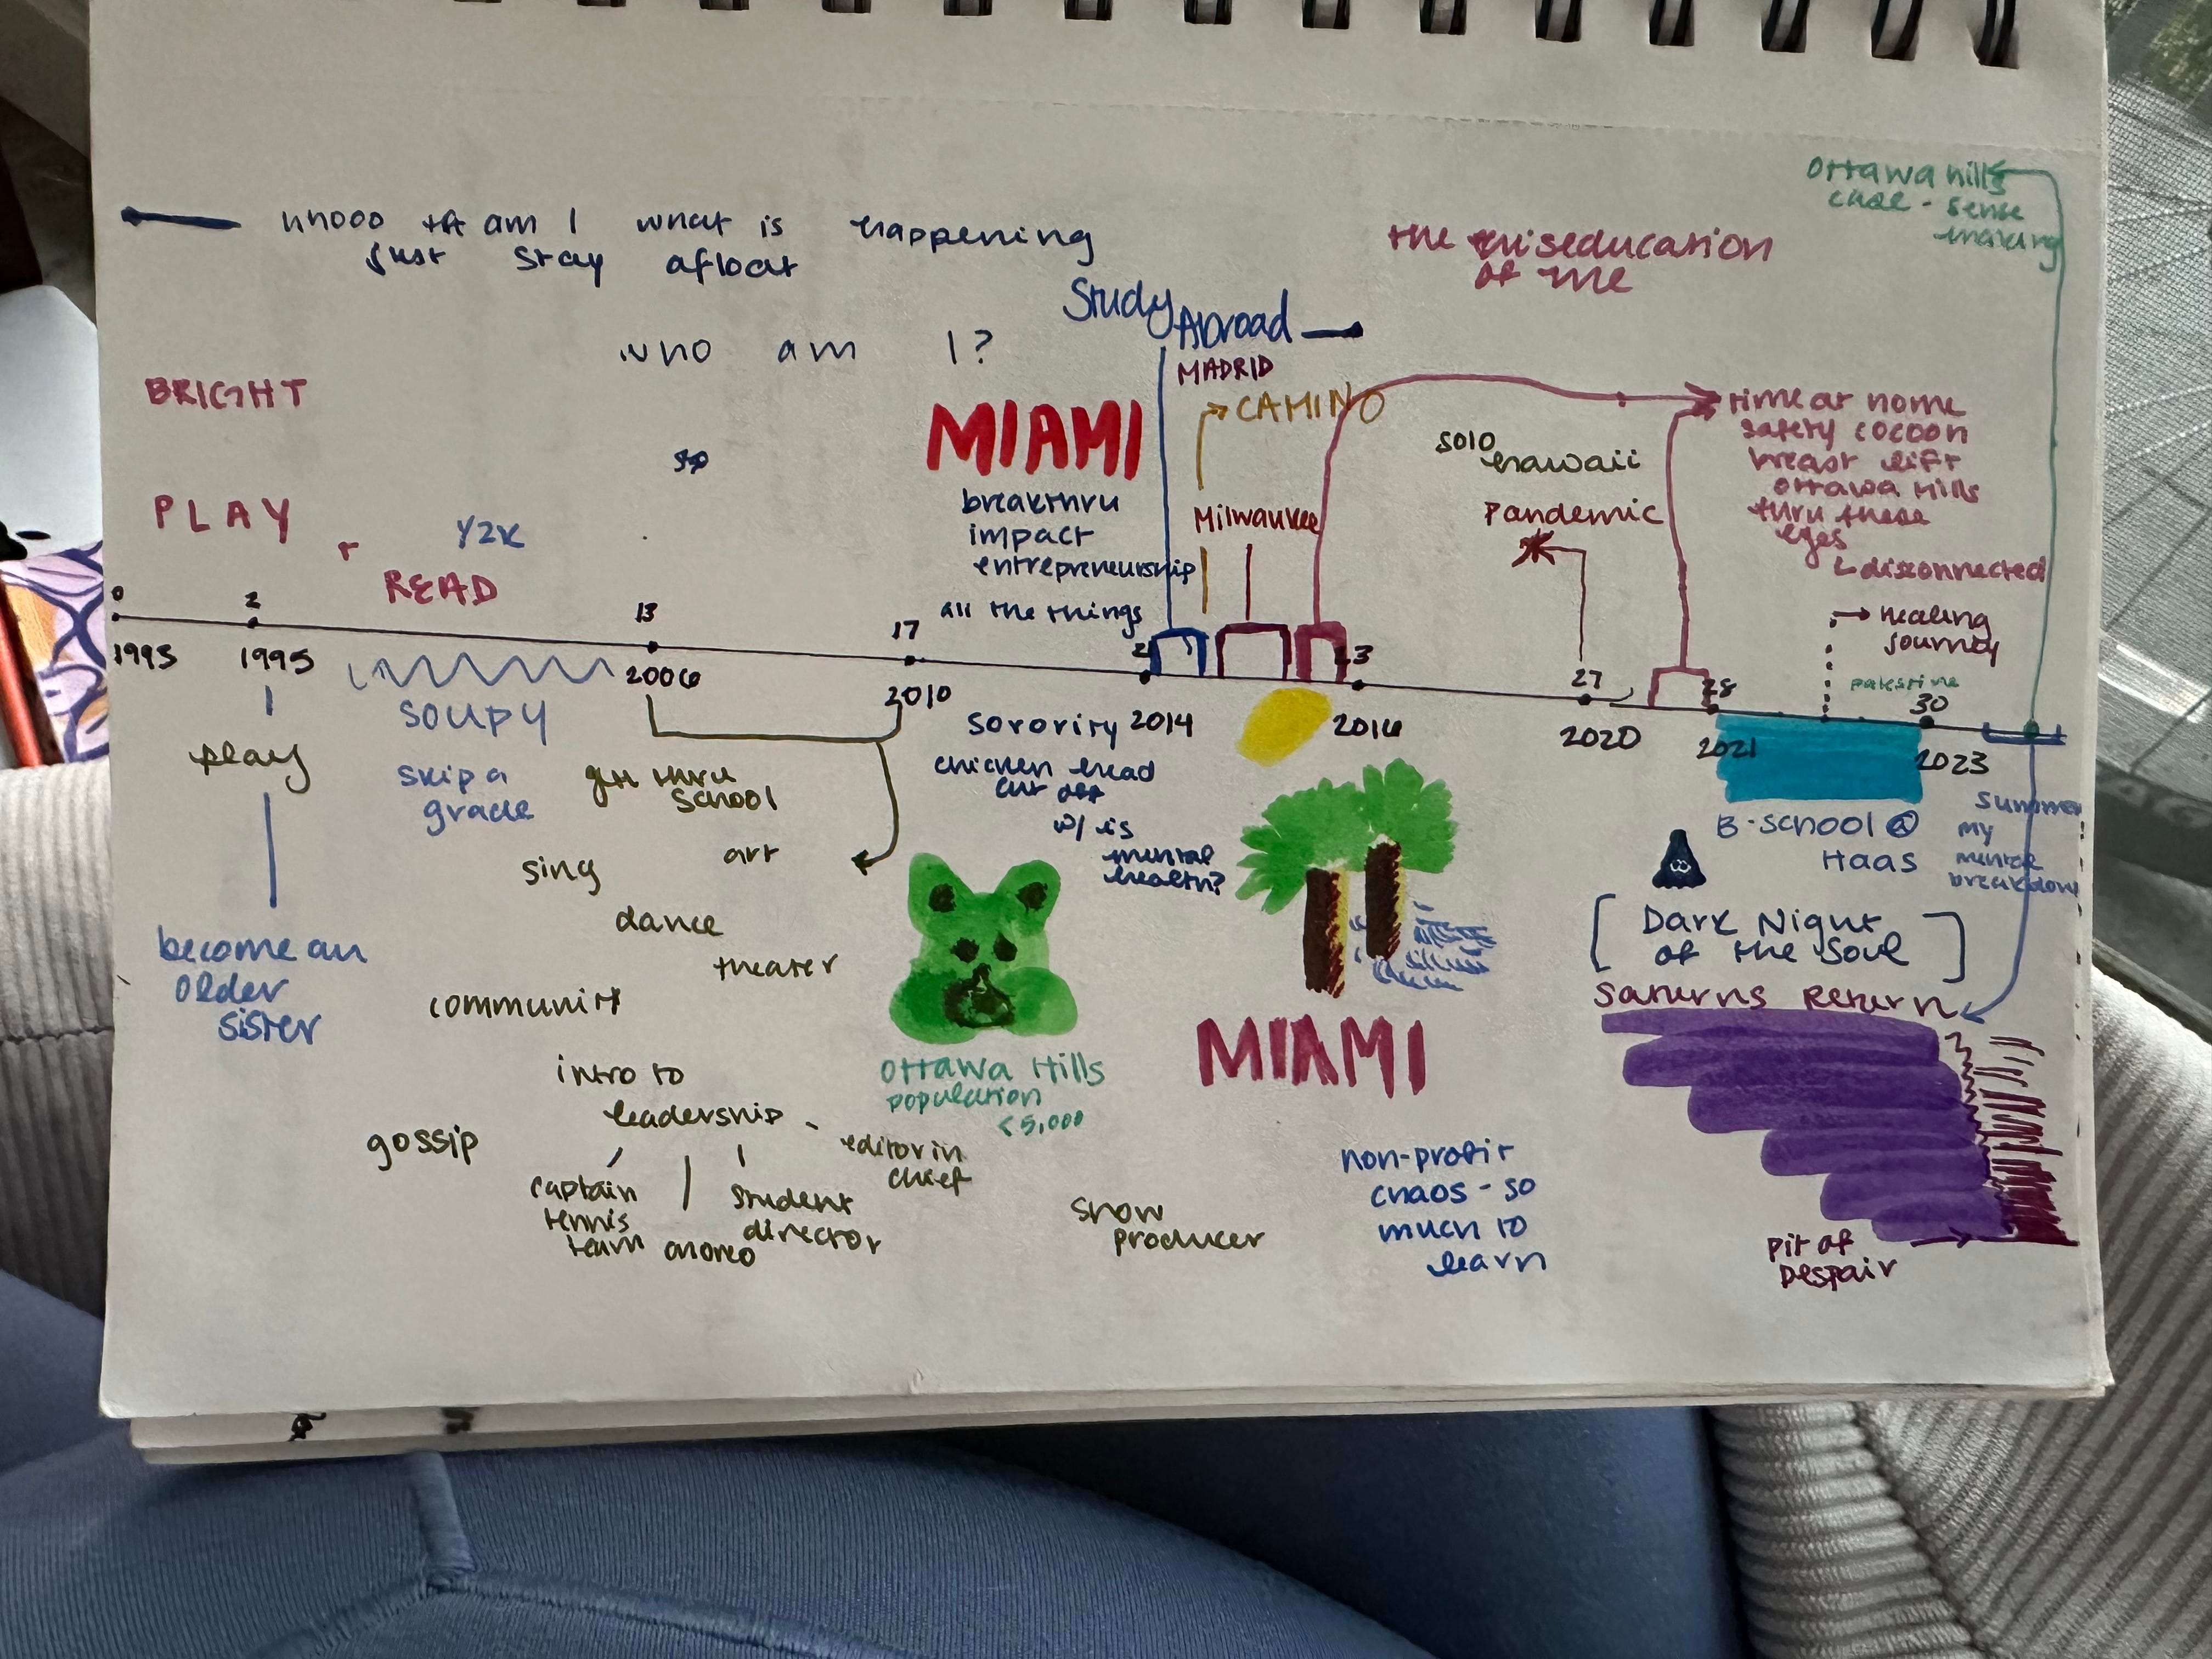 Ottawa hills
case - sense
making
am I what is happening
just stay afloat
the miseducation
of me
Study
Abroad
who am I?
MADRID
BRIGHT
CAMINO
MIAMI
time at home
safety cocoon
breast lift
Ottawa Hills
thru these
eyes
disconnected
solo
hawaii
PLAY
Y2K
breakthru
impact
entrepreneurship
all the things
Milwaukee
Pandemic
READ
healing
journey
palestine
0
2
13
17
27
28
30
1993
1995
2006
2010
2014
2016
2020
2021
2023
play
SOUPY
skip a
grade
become an
older
sister
get thru
school
art
sing
dance
theater
community
intro to
leadership
gossip
captain
tennis
team
student
director
editor in
chief
show
producer
sorority
chicken head
cut off
w/ is
mental
health?
Ottawa Hills
population
<5,000
MIAMI
non-profit
chaos - so
much to
learn
B-school @
Haas
summer
my
mental
breakdown
[Dark Night
of the Soul]
Saturns Return
pit of
Despair